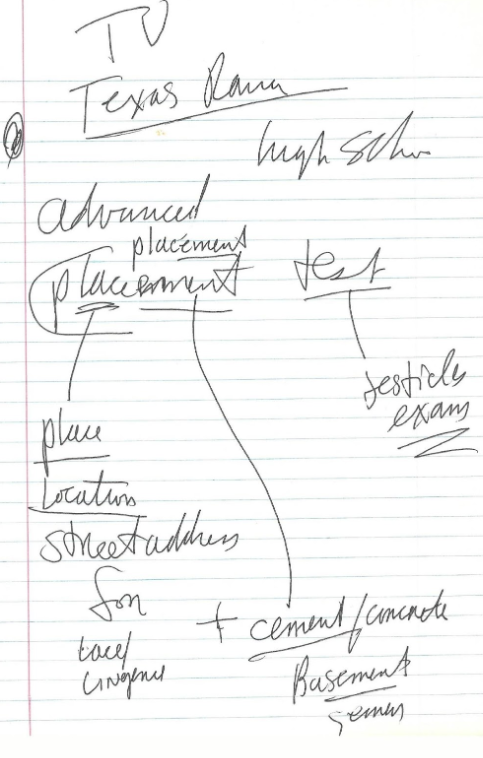 TV
Texas Rana
high sch
advanced
placement
placement test
testicles
exams
place
location
street address
for
lace/
lingerie
+ cement/concrete
Basement
semen